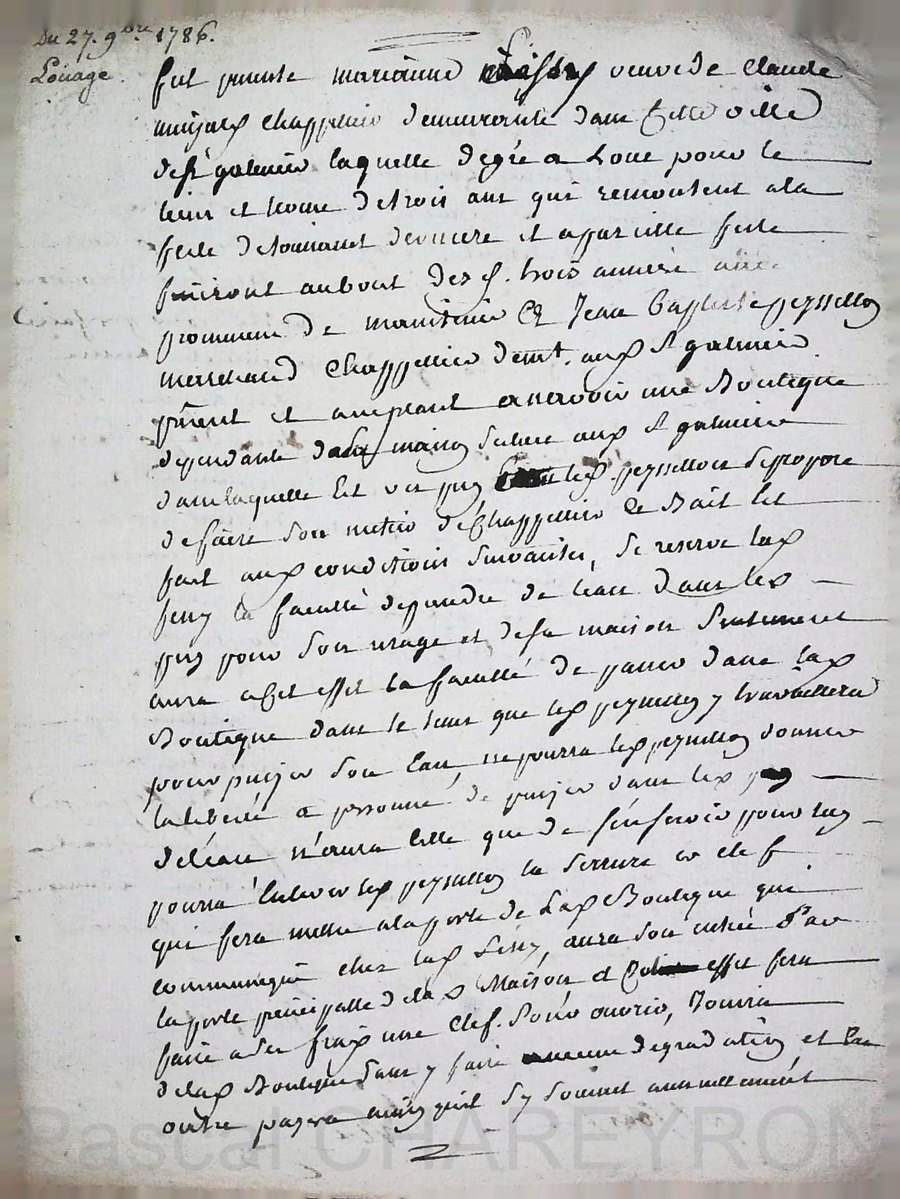 Du 27. 9bre 1786.
Loüage
fut presente marianne veuve de Claude
Chappellier demeurante dans Cette ville
de st galmier laquelle de gré a Loué pour le
tems et terme de trois ans qui remontent a la
feste de toussaint derniere et a pareille feste
finiront au bout des d. trois années avec
promesse de maintenir a Jean Baptiste peyssellon
marchand Chappellier demt. aud st galmier
présent et acceptant une Boutique
dépendante de sa maison scituée aud st galmier
dans laquelle est un puy led. peyssellon se propose
de faire son métier de Chappellier Ce Bail est
fait aux conditions suivantes, Se reserve lad
la faculté de prendre de l'eau dans led
puy pour son usage et de sa maison Seulement
aura a Cet effet la faculté de passer dans lad
Boutique dans le tems que led peyssellon y travaillera
pour puiser son eau, ne pourra led peyssellon donner
la liberté a personne de puiser dans led puy
de l'eau n'aura que de s'en servir pour luy
pourra Enlever led peyssellon la serrure et clef
qui fera mettre a la porte de Lad Boutique qui
communique chez lad aura son entrée par
la porte principalle de lad Maison et effet fera
faire a ses fraix une Clef. pour ouvrir, Jouira
de lad Boutique sans y faire aucune degradation et En
outre payera ainsy qu'il s'y soumet annuellement
Pascal CHAREYRON